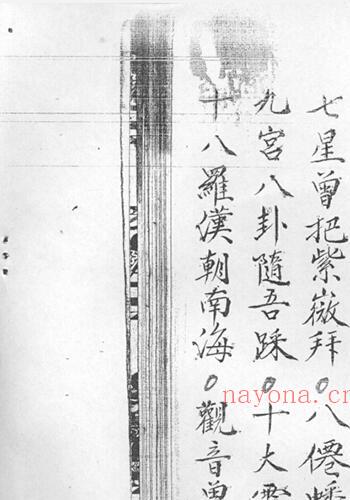 七星曾把紫嶶拜。八僊蟠
九宮八卦隨吾踩。十大
十八羅漢朝南海。觀音
nayona.cn